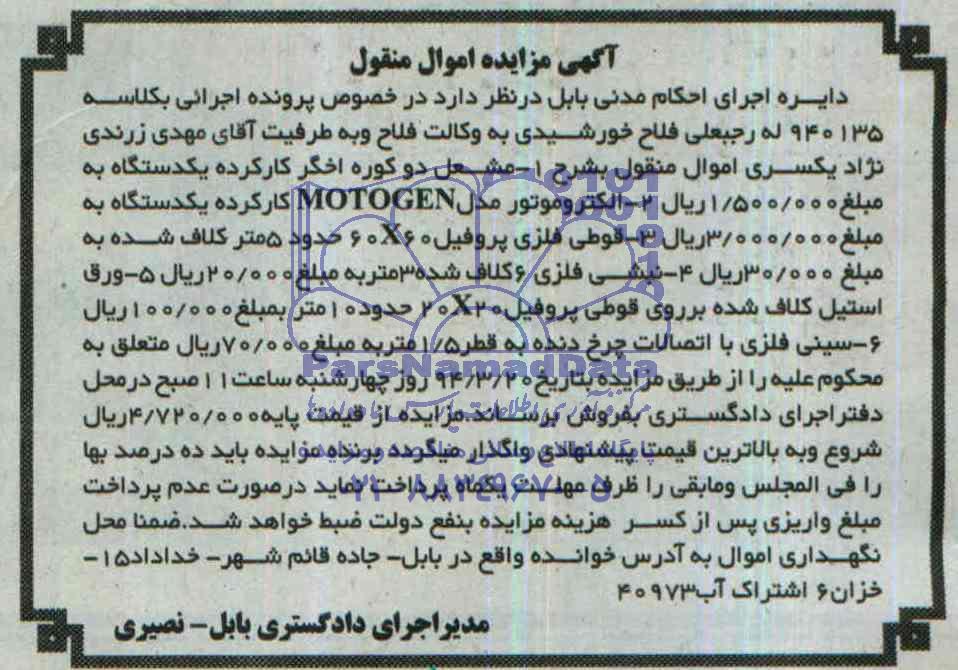 آگهی مزایده اموال منقول
دایـره اجرای احکام مدنی بابل درنظر دارد در خصوص پرونده اجرائی بکلاسـه
۹۴۰۱۳۵ له رجبعلی فلاح خورشـیدی به وکالت فلاح وبه طرفیت آقای مهدی زرندی
نژاد یکسـری اموال منقول بشرح ۱-مشـعل دو کوره اخگر کارکرده یکدستگاه به
مبلغ۱/۵۰۰/۰۰۰ریال ۲-الکتروموتور مدلMOTOGEN کارکرده یکدستگاه به
مبلغ۳/۰۰۰/۰۰۰ریال ۳-قوطی فلزی پروفیل۶۰X۶۰ حدود ۵متر کلاف شـده به
مبلغ ۳۰/۰۰۰ریال ۴-نبشـی فلزی ۶کلاف شده۳متربه مبلغ۲۰/۰۰۰ریال ۵-ورق
استیل کلاف شده برروی قوطی پروفیل۲۰X۲۰ حدود۱۰متر بمبلغ۱۰۰/۰۰۰ریال
۶-سینی فلزی با اتصالات چرخ دنده به قطر۱/۵متربه مبلغ۷۰/۰۰۰ریال متعلق به
محکوم علیه را از طریق مزایده بتاریخ۹۴/۳/۲۰ روز چهارشنبه ساعت۱۱صبح درمحل
دفتراجرای دادگسـتری بفروش برسـاند.مزایده از قیمت پایه۴/۷۲۰/۰۰۰ریال
شروع وبه بالاترین قیمت پیشنهادی واگذار میگردد برنده مزایده باید ده درصد بها
را فی المجلس ومابقی را ظرف مهلـت یکماه پرداخت نماید درصورت عدم پرداخت
مبلغ واریزی پس از کسـر هزینه مزایده بنفع دولت ضبط خواهد شـد.ضمنا محل
نگهـداری اموال به آدرس خوانـده واقع در بابل- جاده قائم شـهر- خرداد۱۵-
خزان۶ اشتراک آب۴۰۹۷۳
مدیراجرای دادگستری بابل- نصیری
ParsNamadData
۰۲۱-۸۸۳۴۹۶۷۰-۵